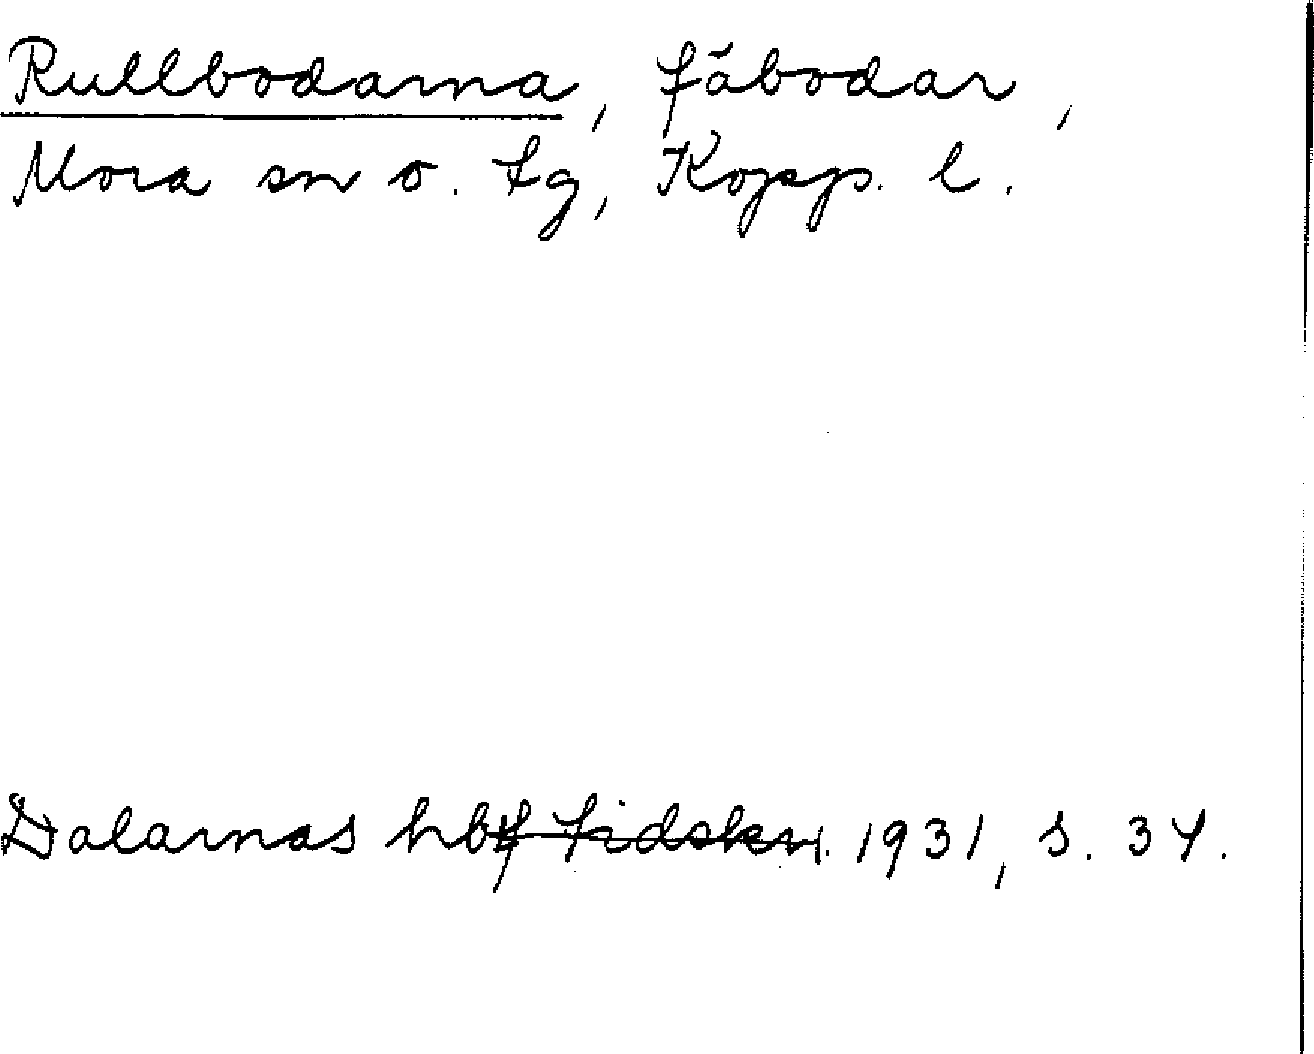 Rullbodarna, fäbodar,
Mora sn o. tg, Kopp. l.
Dalarnas hbf tidskr. 1931, s. 34.